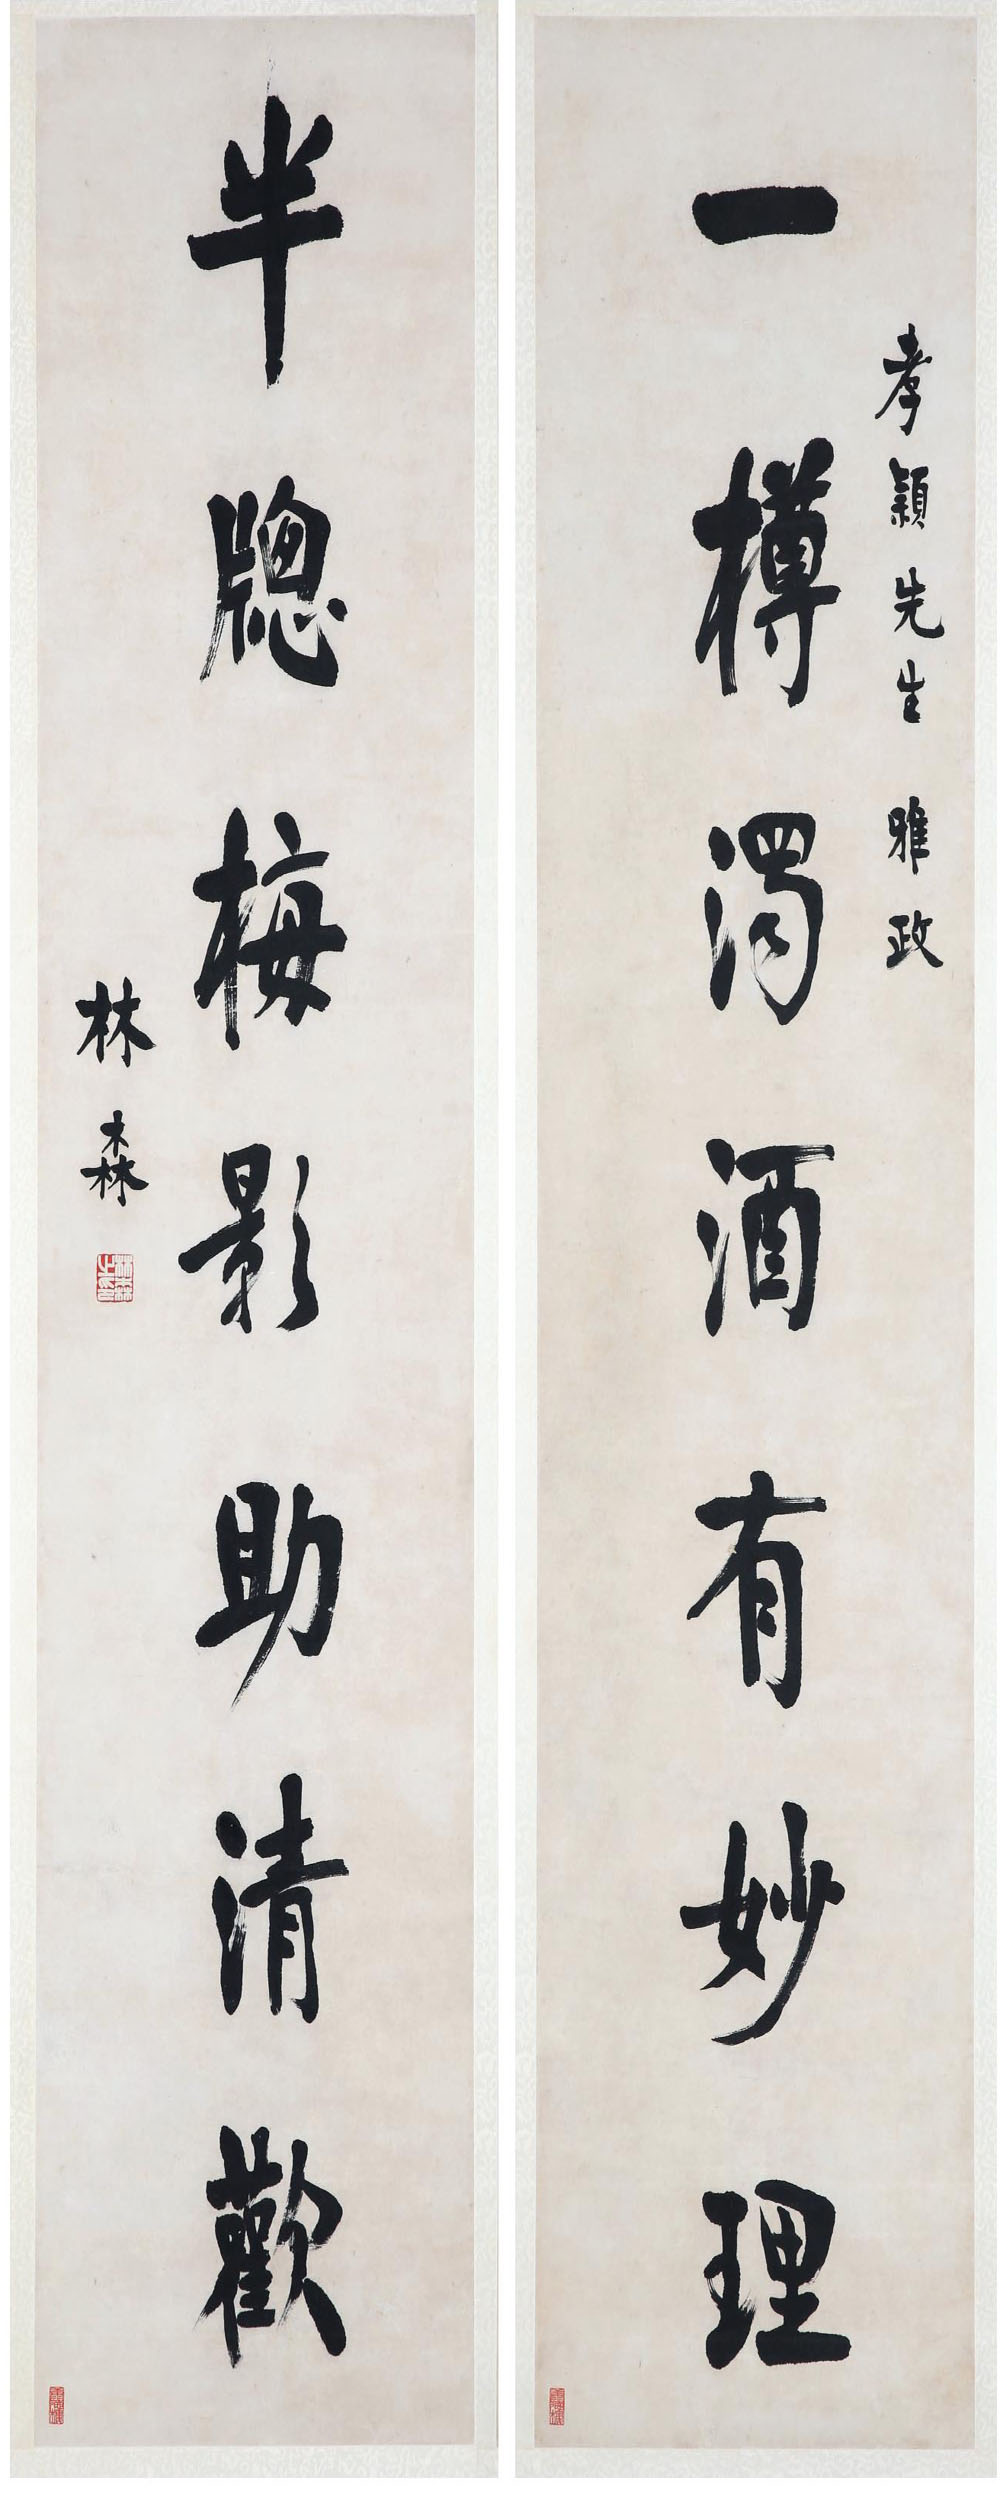 孝穎先生雅政
一樽濁酒有妙理
半牕梅影助清歡
林森
林森之印